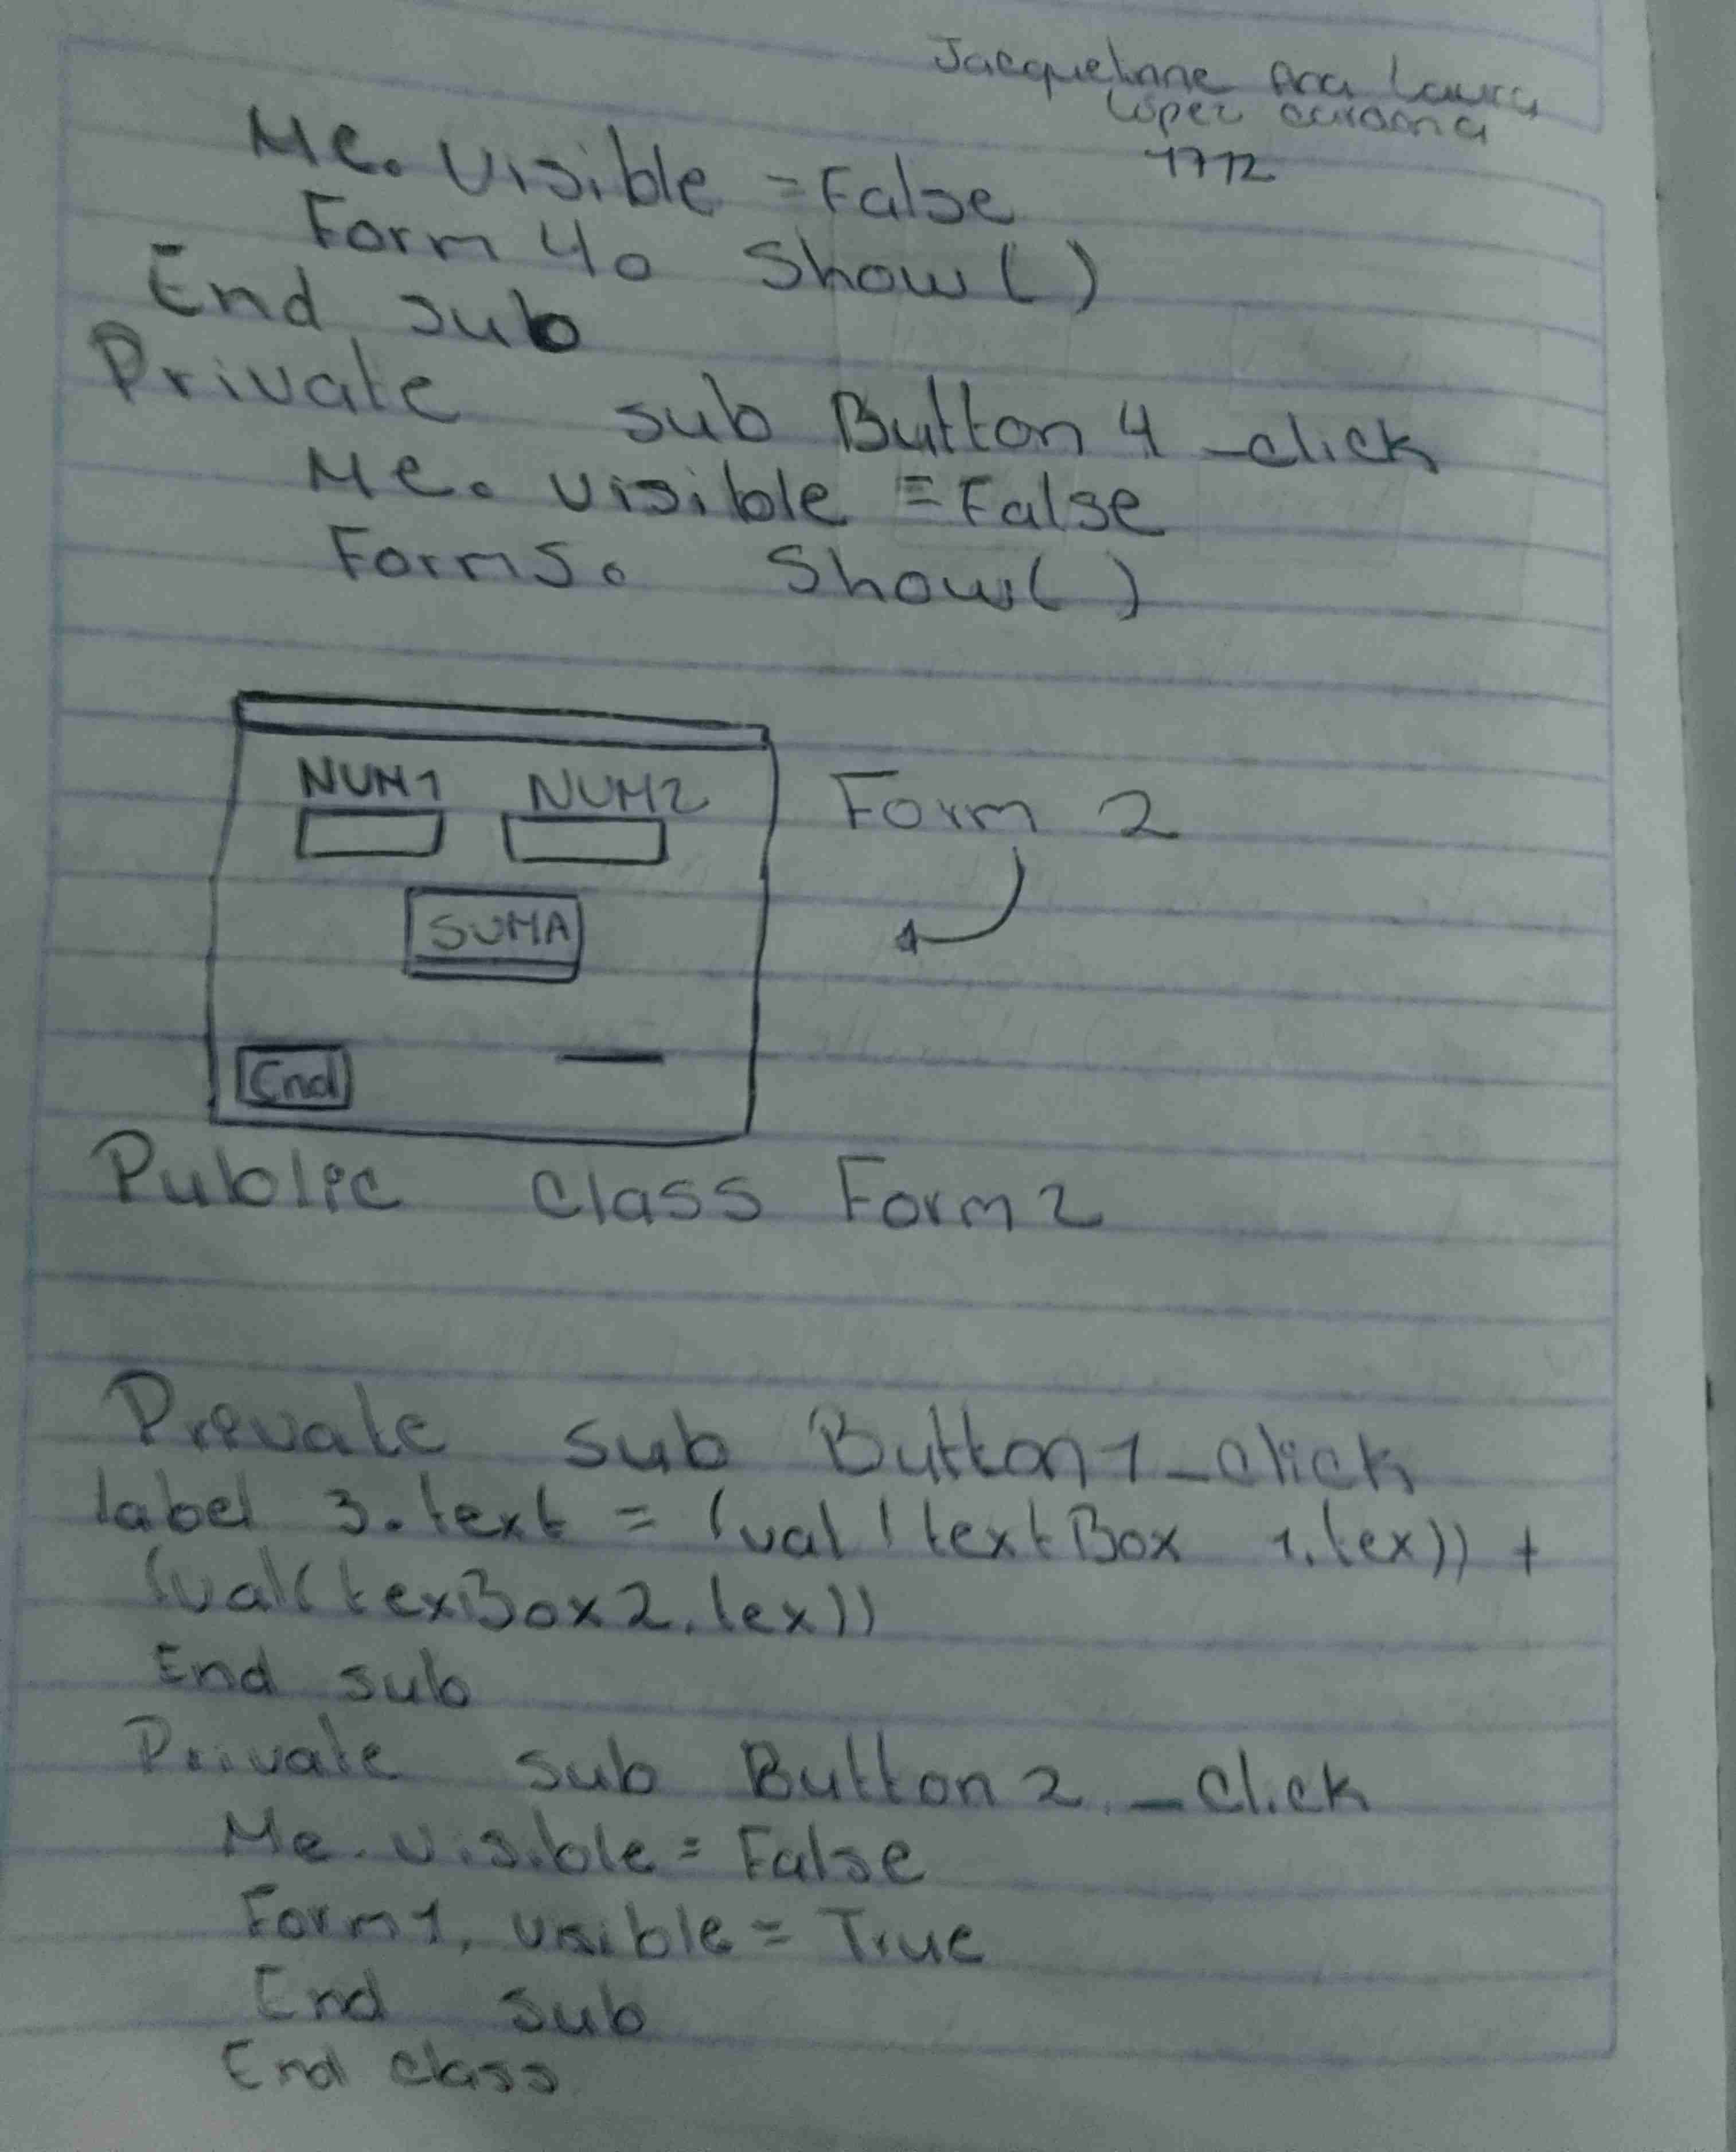 Jacquelinne Ana Laura
López
1712
Me. visible = False
Form 4. Show ( )
End sub
Private sub Button 4 _click
Me. visible = False
Form5. Show( )
NUM1 NUM2
Form 2
SUMA
End
Public class Form 2
Prevate sub Button 1_click
label 3. text = (val ( textBox 1. tex)) +
(val( texBox 2. tex))
End sub
Private sub Button 2 _ click
Me. visible = False
Form 1. visible = True
End sub
End class